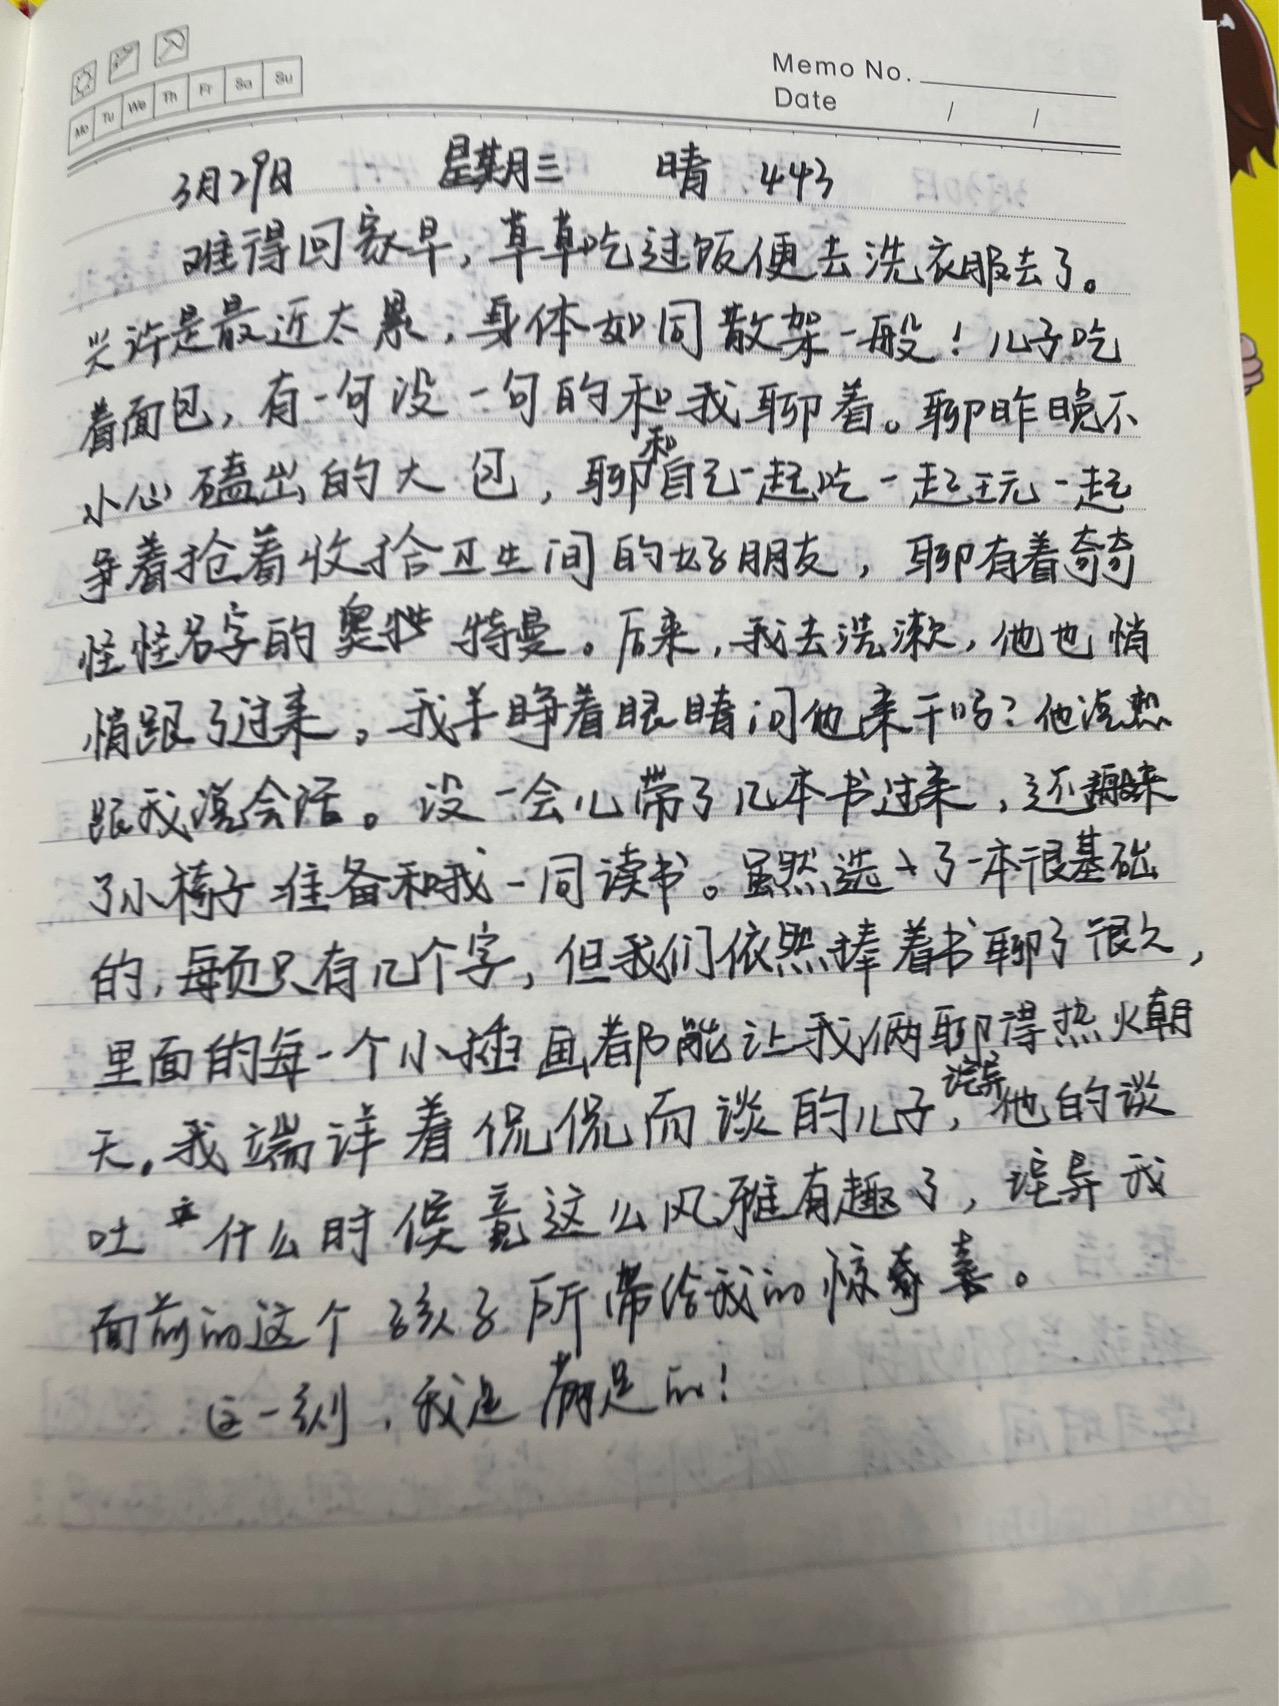 Memo No.
Date / /
Mo Tu We Th Fr Sa Su
3月29日 星期三 晴 443
难得回家早，草草吃过饭便去洗衣服去了。
兴许是最近太累，身体如同散架一般！儿子吃
着面包，有一句没一句的和我聊着。聊昨晚不
小心磕出的大包，聊和自己一起吃一起玩一起
争着抢着收拾卫生间的好朋友，聊有着奇奇
怪怪名字的奥特曼。后来，我去洗漱，他也悄
悄跟了过来。我半睁着眼睛问他来干吗？他说想
跟我说会话。没一会儿带了几本书过来，还搬来
了小椅子准备和我一同读书。虽然选了一本很基础
的，每页只有几个字，但我们依然捧着书聊了很久，
里面的每一个小插画都能让我俩聊得热火朝
天。我端详着侃侃而谈的儿子，诧异他的谈
吐什么时候竟这么风雅有趣了，诧异我
面前的这个孩子所带给我的惊喜。
这一刻，我是满足的！